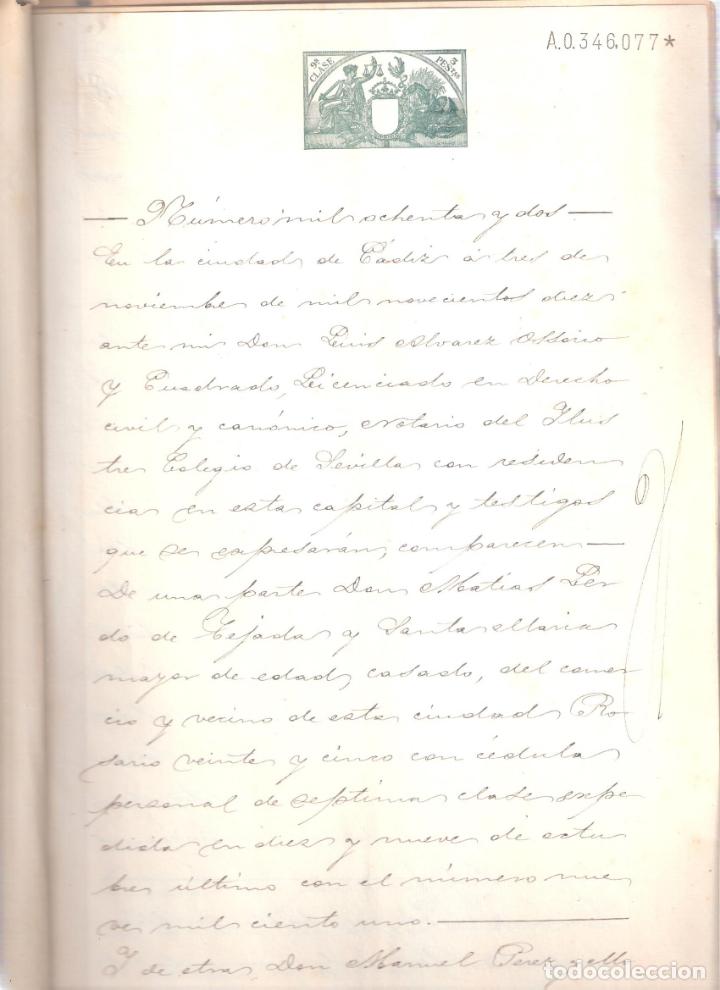 A.0.346.077*
9ª CLASE
3 PESTAS
— Número mil ochenta y dos —
En la ciudad de Cádiz á tres de
noviembre de mil novecientos diez
ante mi Don Luis Alvarez Ossorio
y Cuadrado, Licenciado en Derecho
civil y canónico, Notario del Ilus
tre Colegio de Sevilla con residen
cia en esta capital y testigos
que se expresarán, comparecen —
De una parte Don Matias Per-
do de Tejada y Santa Maria
mayor de edad, casado, del comer
cio y vecino de esta ciudad Ro-
sario veinte y cinco con cédula
personal de septima clase expe
dida en diez y nueve de octu
bre último con el número nue
ve mil ciento uno. —
Y de otra, Don Manuel Perez y
todocoleccion
todocoleccion.net